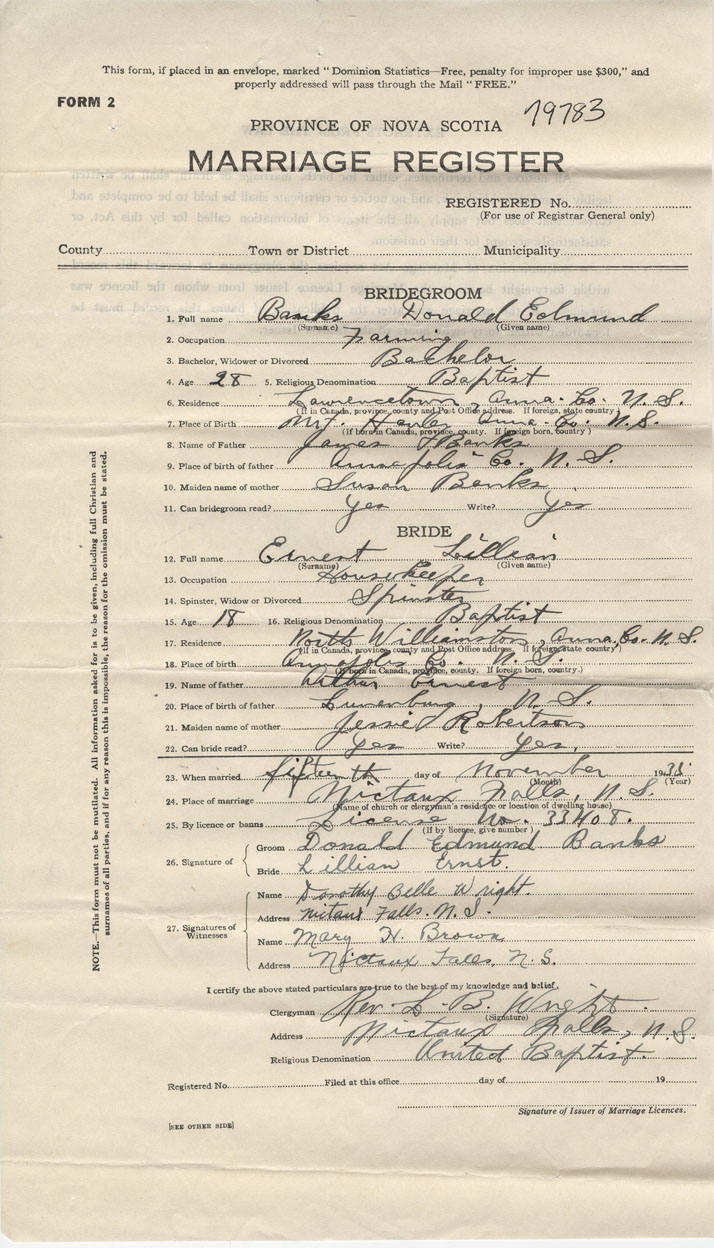 This form, if placed in an envelope, marked "Dominion Statistics—Free, penalty for improper use $300," and
properly addressed will pass through the Mail "FREE."
FORM 2
19783
PROVINCE OF NOVA SCOTIA
MARRIAGE REGISTER
REGISTERED No.
(For use of Registrar General only)
County Town or District Municipality
BRIDEGROOM
1. Full name Banks Donald Edmund
(Surname) (Given name)
2. Occupation Farming
3. Bachelor, Widower or Divorced Bachelor
4. Age 28 5. Religious Denomination Baptist
6. Residence Lawrencetown, Anna. Co. N.S.
(If in Canada, province, county and Post Office address. If foreign, state country)
7. Place of Birth Mt. Hanley Anna. Co. N.S.
(If born in Canada, province, county. If foreign born, country)
8. Name of Father James Banks
9. Place of birth of father Annapolis Co. N.S.
10. Maiden name of mother Susan Banks
11. Can bridegroom read? Yes Write? Yes
BRIDE
12. Full name Ernest Lillian
(Surname) (Given name)
13. Occupation Housekeeper
14. Spinster, Widow or Divorced Spinster
15. Age 18 16. Religious Denomination Baptist
17. Residence North Williamston, Anna. Co. N.S.
(If in Canada, province, county and Post Office address. If foreign, state country)
18. Place of birth Annapolis Co. N.S.
(If born in Canada, province, county. If foreign born, country.)
19. Name of father Arthur Ernest
20. Place of birth of father Lunenburg, N.S.
21. Maiden name of mother Jessie Robertson
22. Can bride read? Yes Write? Yes.
23. When married fifteenth day of November 19
(Month) (Year)
24. Place of marriage Nictaux Falls, N.S.
(Name of church or clergyman's residence or location of dwelling house)
25. By licence or banns License No. 33408.
(If by licence, give number)
26. Signature of
Groom Donald Edmund Banks
Bride Lillian Ernst.
27. Signatures of Witnesses
Name Dorothy Belle Wright.
Address Nitaux Falls. N.S.
Name Mary H. Brown
Address Nictaux Falls, N.S.
I certify the above stated particulars are true to the best of my knowledge and belief.
Clergyman Rev. L. B. Wright.
(Signature)
Address Nictaux Falls, N.S.
Religious Denomination United Baptist.
Registered No. Filed at this office day of 19
Signature of Issuer of Marriage Licences.
[SEE OTHER SIDE]
NOTE.—This form must not be mutilated. All information asked for is to be given, including full Christian and
surnames of all parties, and if for any reason this is impossible, the reason for the omission must be stated.